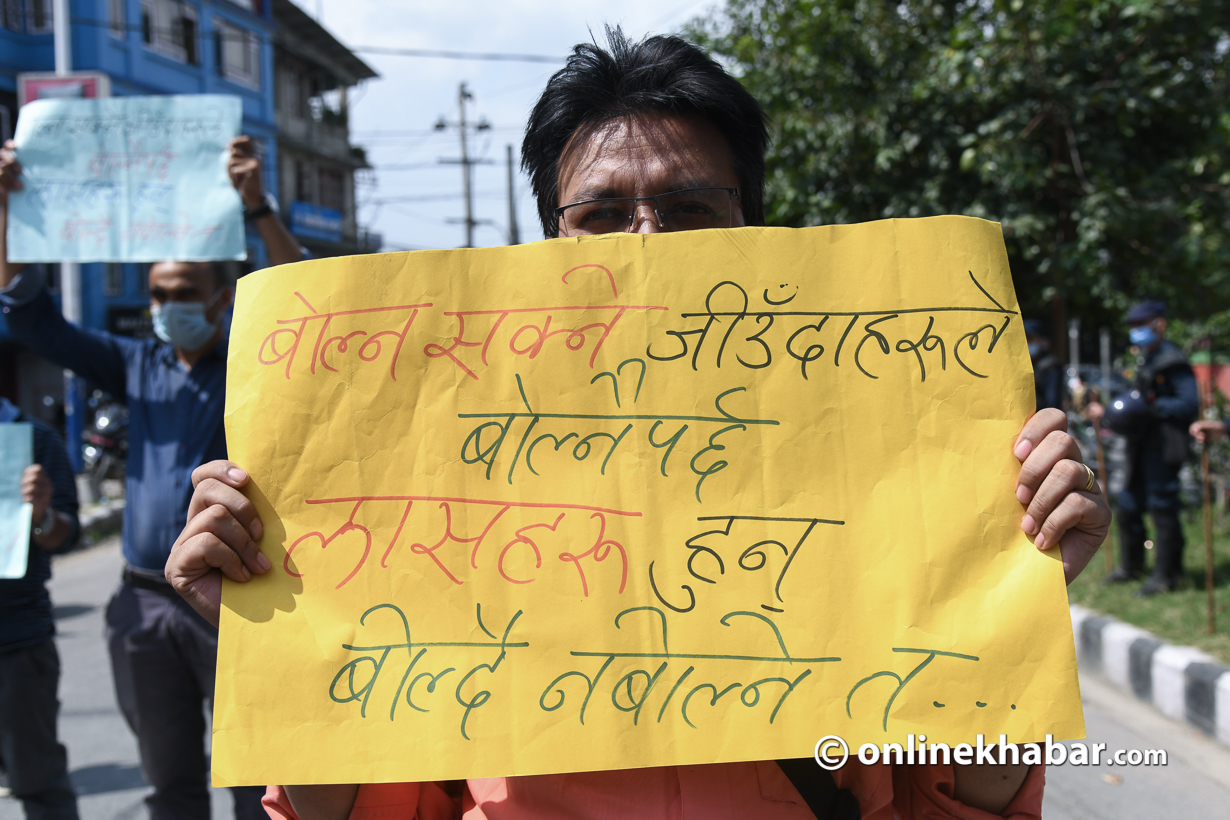 बोल्न सक्ने जीउँदाहरूले
बोल्नै पर्द
लासहरू हुन्
बोल्दै नबोल्ने त...
© onlinekhabar.com